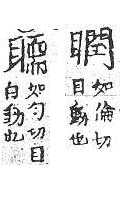 瞤
如倫切
目動也
如勻切目
自動也